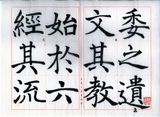 委之遺
文其教
始於六
經其流